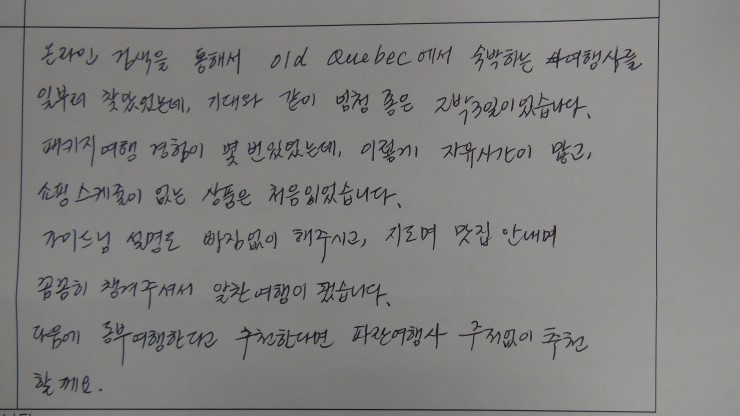 온라인 검색을 통해서 old Quebec에서 숙박하는 여행사를
일부러 찾았었는데, 기대와 같이 멈청 좋은 2박3일이었습니다.
패키지여행 경험이 몇 번있었는데, 이렇게 자유시간이 많고,
쇼핑스케줄이 없는 상품은 처음이었습니다.
가이드님 설명도 빠짐없이 해주시고, 지도며 맛집 안내며
꼼꼼히 챙겨주셔서 알찬여행이 됐습니다.
다음에 동부여행한다고 추천한다면 파란여행사 주저없이 추천
할께요.